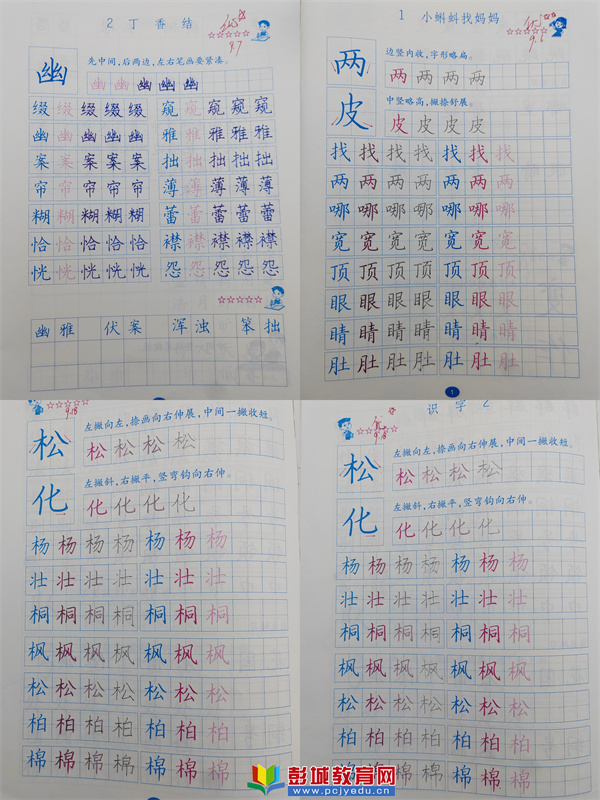 2 丁 香 结
优
9.7
幽
先中间，后两边，左右笔画要紧凑。
幽 幽 幽 幽 幽
缀 缀 缀 缀 缀 窥 窥 窥 窥 窥
幽 幽 幽 幽 幽 雅 雅 雅 雅 雅
案 案 案 案 案 拙 拙 拙 拙 拙
帘 帘 帘 帘 帘 薄 薄 薄 薄 薄
糊 糊 糊 糊 糊 蕾 蕾 蕾 蕾 蕾
恰 恰 恰 恰 恰 襟 襟 襟 襟 襟
恍 恍 恍 恍 恍 怨 怨 怨 怨 怨
幽 雅 伏 案 浑 浊 笨 拙
1 小蝌蚪找妈妈
优
9.6
两
边竖内收，字形略扁。
两 两 两 两
皮
中竖略高，撇捺舒展。
皮 皮 皮 皮
找 找 找 找 找 找 找
两 两 两 两 两 两 两
哪 哪 哪 哪 哪 哪 哪
宽 宽 宽 宽 宽 宽 宽
顶 顶 顶 顶 顶 顶 顶
眼 眼 眼 眼 眼 眼 眼
睛 睛 睛 睛 睛 睛 睛
肚 肚 肚 肚 肚 肚 肚
1
9.18
松
左撇向左，捺画向右伸展，中间一撇收短。
松 松 松 松
化
左撇斜，右撇平，竖弯钩向右伸。
化 化 化 化
杨 杨 杨 杨 杨 杨 杨
壮 壮 壮 壮 壮 壮 壮
桐 桐 桐 桐 桐 桐 桐
枫 枫 枫 枫 枫 枫 枫
松 松 松 松 松 松 松
柏 柏 柏 柏 柏 柏 柏
棉 棉 棉 棉 棉 棉 棉
识 字 2
优
9.18
松
左撇向左，捺画向右伸展，中间一撇收短。
松 松 松 松
化
左撇斜，右撇平，竖弯钩向右伸。
化 化 化 化
杨 杨 杨 杨 杨 杨 杨
壮 壮 壮 壮 壮 壮 壮
桐 桐 桐 桐 桐 桐 桐
枫 枫 枫 枫 枫 枫 枫
松 松 松 松 松 松 松
柏 柏 柏 柏 柏 柏 柏
棉 棉 棉 棉 棉 棉 棉
彭城教育网
www.pcjyedu.cn